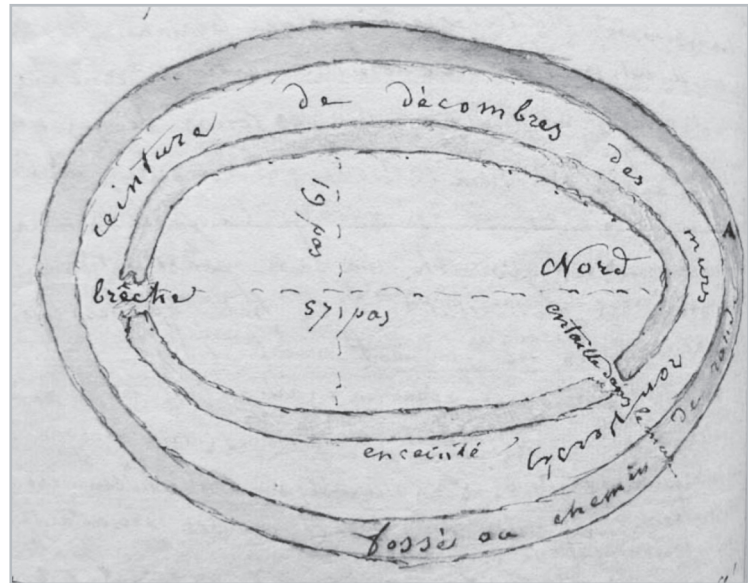 ceinture de décombres des murs
19 pas
Nord
brèche
57 pas
entaille dans le mur
enceinte
fossé ou chemin de ronde
A